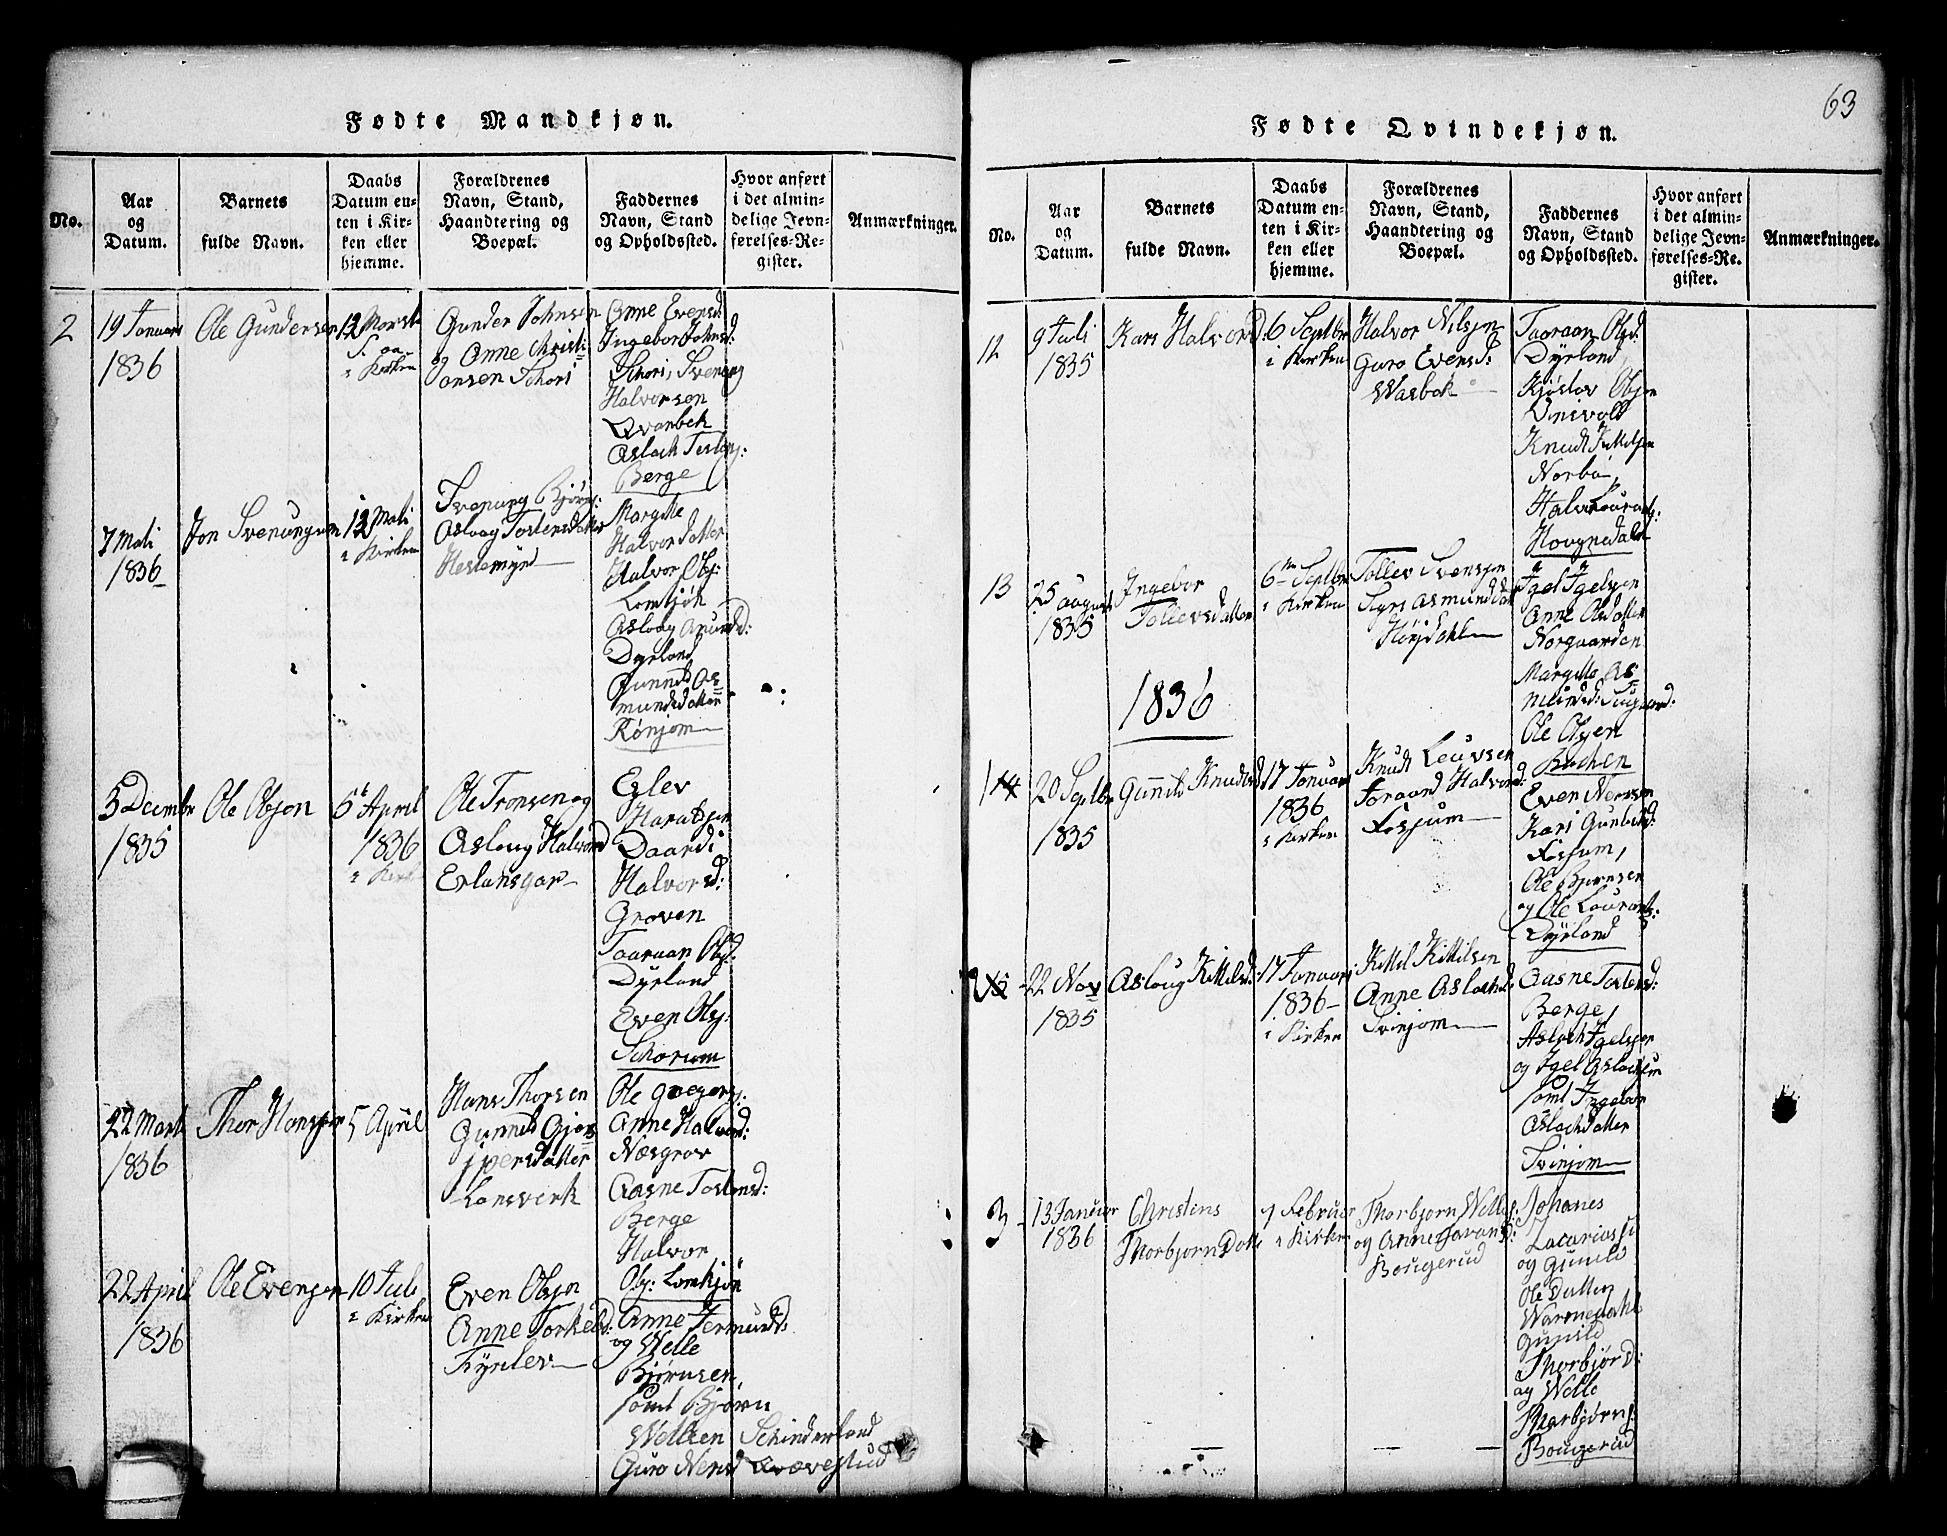 63
Fødte Mandkjøn.
No.
Aar
og
Datum.
Barnets
fulde Navn.
Daabs
Datum en-
ten i Kir-
ken eller
hjemme.
Forældrenes
Navn, Stand,
Haandtering og
Boepæl.
Faddernes
Navn, Stand
og Opholdssted.
Hvor anført
i det almin-
delige Jevn-
førelses-Re-
gister.
Anmærkninger.
2
19 Januari
1836
Ole Gundersen
12
Kirken
Gunder Johnsen
og Anne Christi
Jansen Schori
Anne Evensd:
Ingebor Johnsd:
Schori, Svenung
Halvorsen
Qvanbek
Aslach Tostens:
Berge
7 Mali
1836
Jon Svenungsøn
12 Mali
i Kirken
Svenung Bjørns:
Aslaug Tostensdatter
Hestemyr
Margitte
Halvorsdatter
Halvor Olsj:
Lomtjøn
Aslaug Amunds:
Dyrland
Gunnild As
mundsdatter
Rønjom
5 Decembr
1835
Ole Olsjon
5 April
1836
i Kirk
Ole Tronsen og
Aslaug Halvord
Erlansgar
Eglev
Daardi
Halvorsd:
Groven
Taaraan Olsd:
Dyrland
Even Olsj:
Schorum
22 Mart
1836
Thor Hansjøn
5 April
Hans Thorsen
Gunnild Gjer
jpersdatter
Lonsverk
Ole Gregers:
Anne Halvord:
Næsgrav
Aasne Tostensd:
Berge
Halvor
Olsj: Lomkjøn
22 April
1836
Ole Evensjon
10 Juli
i Kirken
Even Olsjon
Anne Torkeld:
Anne Jermunds:
og Welle
Bjørnsen,
samt Bjørn
Wellsen Schinderland
Guro Nersd
Fødte Qvindekjøn.
No.
Aar
og
Datum.
Barnets
fulde Navn.
Daabs
Datum en-
ten i Kir-
ken eller
hjemme.
Forældrenes
Navn, Stand,
Haandtering og
Boepæl.
Faddernes
Navn, Stand
og Opholdssted.
Hvor anført
i det almin-
delige Jevn-
førelses-Re-
gister.
Anmærkninger.
12
9 Juli
1835
Kari Halvord:
6 Septbr
i Kirken
Halvor Nilsjen
Guro Evensd:
Wasbek
Taaraan Olsd:
Dyrland,
Kjøstov Olsjen
Knudt Kittilsjen
Norbø
Halvor Lourants:
Hovgnedalen
13
25 august
1835
Ingebor
Tollevsdatter
6 Septbr
i Kirken
Tollev Svensjen
Sigri Asmundsdat
Høijdahl
Igel Igelsjen
Anne Olsdatter
Norgaarden
Margitte As
Ole Olsjen
Bachen
1836
14
20 Septbr
1835
Gunild Knudtsd
17 Januari
1836
i Kirken
Knudt Leuvsen
Taraand Halvord:
Fosjum
Even Nerssen
Kari Gunulvd:
Fossum,
Ole Bjørnsen
og Ole Laurants:
Dyrland
22 Nov
1835
Asloug Kittilsd:
17 Januari
1836
i Kirken
Kittil Kittilsen
Anne Aslachd
Svinjom
Aasne Tostensd:
Berge,
Aslach Igelsjen
og Igel Aslachsen
samt Ingebor
Aslachdatter
Svinjom
3
13 Januar
1836
Christens
ThorbjørnDatte
7 Februar
i Kirken
Thorbjørn Welles:
og Anne Tavansd:
Bougerud
Johanes
Zacariassen
og Gunild
Ole Datter
Warmedahl
Gunild
Thorbjørd:
og Welle
Thorbjørns:
Bougerud